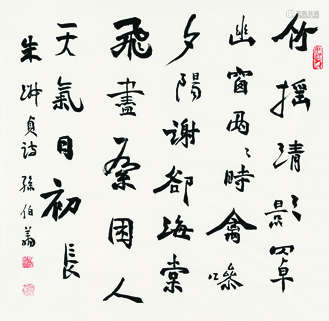 竹搖清影罩
幽窗兩〻時禽噪
夕陽謝卻海棠
飛盡絮困人
天氣日初長
朱淑貞詩 孫伯翁